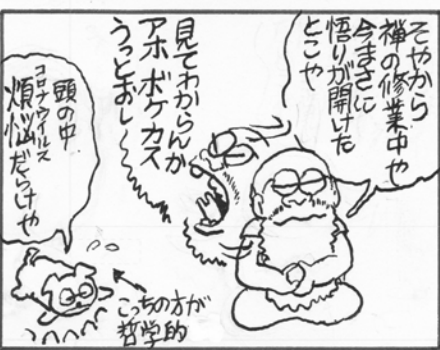 そやから
禅の修業中や
今まさに
悟りが開けた
とこや
見てわからんか
アホ ボケ カス
うっとおし〜〜
頭の中
コロナウイルス
煩悩だらけや
こっちの方が
哲学的